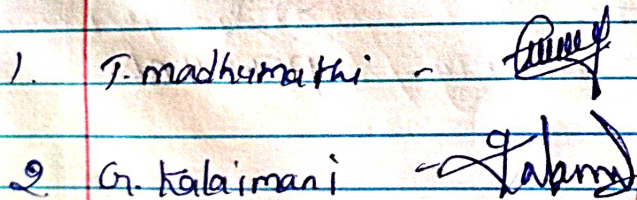 1. T. madhumathi -
2 G. Kalaimani -